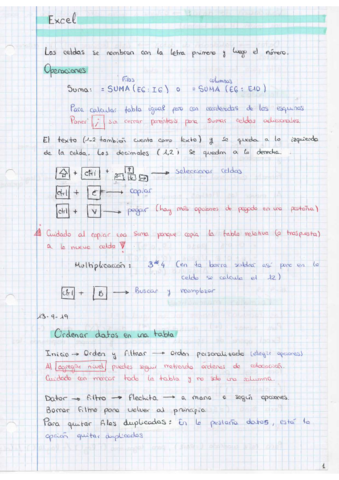 Excel
Las celdas se nombran con la letra primero y luego el número.
Operaciones
Filas columnas
Suma: =SUMA(E6:I6) o =SUMA(E6:E10)
Para calcular tabla igual pero con contenidos de las esquinas
Poner ; sin cerrar paréntesis para sumar celdas adicionales
El texto (1.2 también cuenta como texto) y se queda a la izquierda
de la celda. Los decimales (1,2) se quedan a la derecha.
+ ctrl + → seleccionar celdas
ctrl + C → copiar
ctrl + V → pegar (hay más opciones de pegado en una pestaña)
Cuidado al copiar una suma porque copia la tabla relativa (o traspuesta)
a la nueva celda !
Multiplicación: 3*4 (en la barra saldrá así pero en la
celda se calcula el 12)
ctrl + B → Buscar y reemplazar
Ordenar datos en una tabla
Inicio → Orden y filtrar → orden personalizado (elegir opciones)
Al agregar nivel puedes seguir metiendo órdenes de ordenación.
Cuidado con marcar toda la tabla y no solo una columna.
Datos → Filtro → Flechita → a mano o según opciones.
Borrar Filtro para volver al principio.
Para quitar filas duplicadas: En la pestaña datos, está la
opción quitar duplicados
1